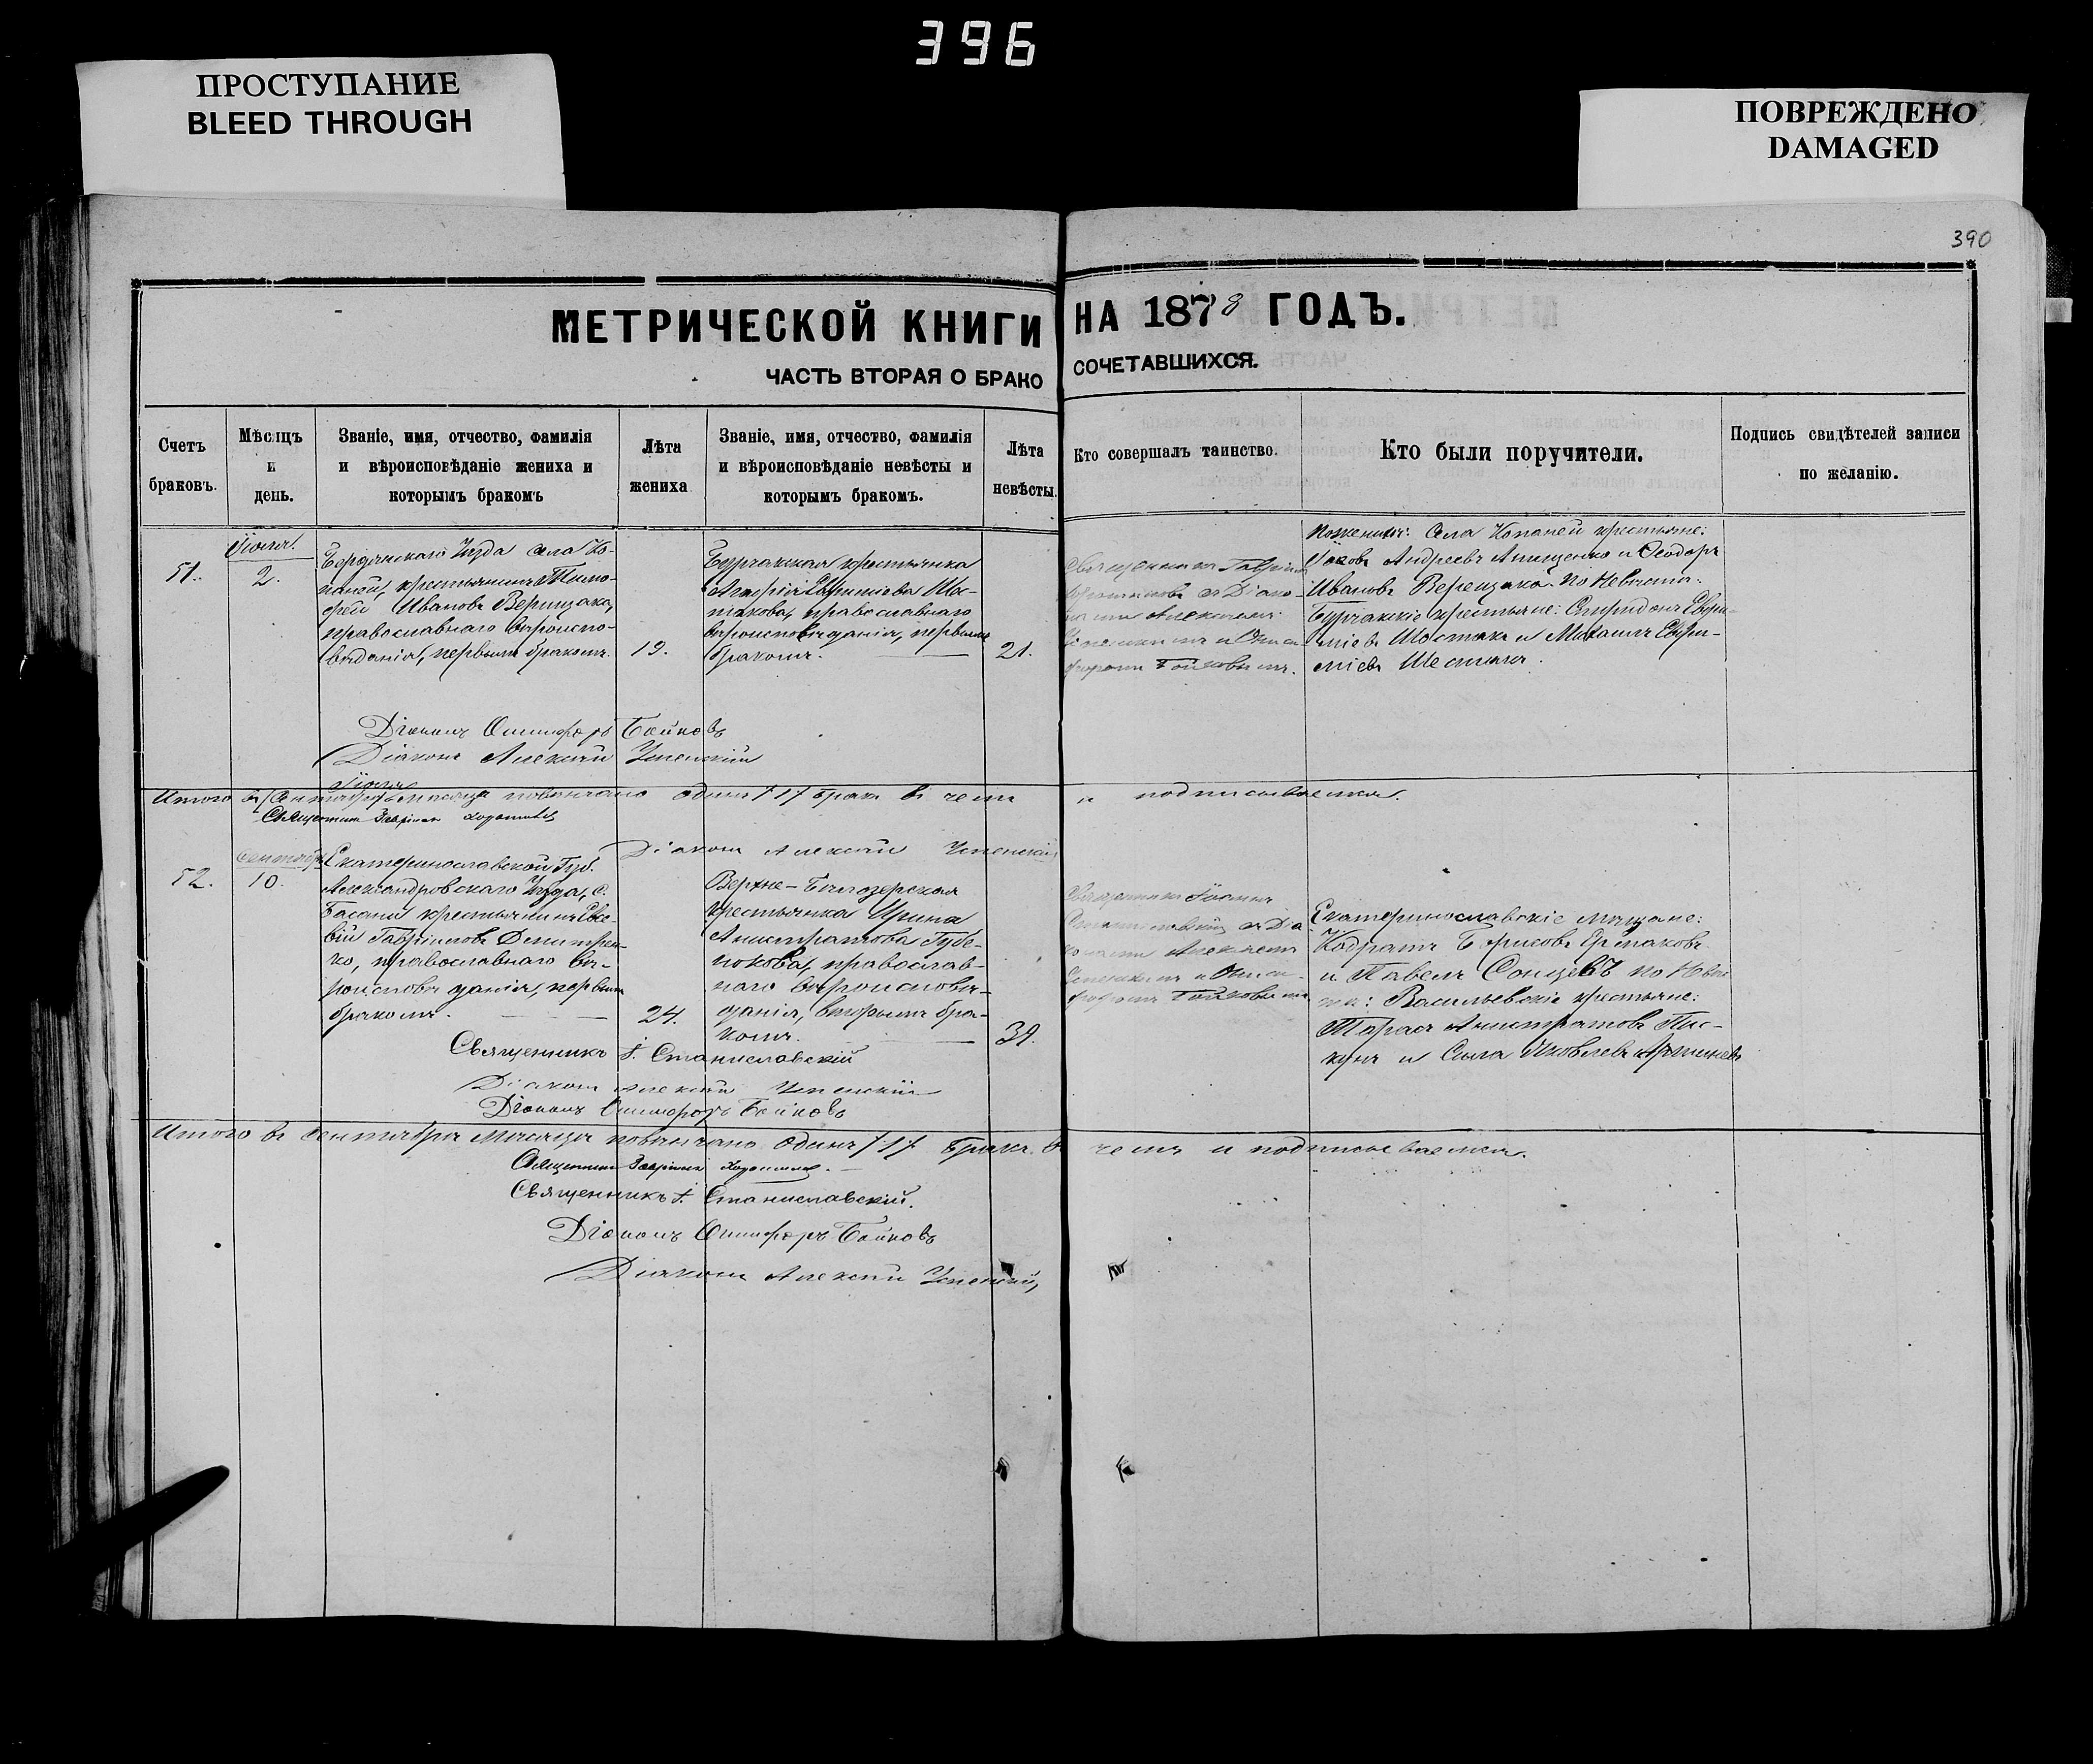 396
ПРОСТУПАНИЕ
BLEED THROUGH
ПОВРЕЖДЕНО
DAMAGED
390
МЕТРИЧЕСКОЙ КНИГИ НА 1878 ГОДЪ.
ЧАСТЬ ВТОРАЯ О БРАКОСОЧЕТАВШИХСЯ.
Счетъ
браковъ.
Мѣсяцъ
и
день.
Званіе, имя, отчество, фамилія
и вѣроисповѣданіе жениха и
которымъ бракомъ
Лѣта
жениха
Званіе, имя, отчество, фамилія
и вѣроисповѣданіе невѣсты и
которымъ бракомъ.
Лѣта
невѣсты.
Кто совершалъ таинство.
Кто были поручители.
Подпись свидѣтелей записи
по желанію.
51.
Іюля.
2.
Бердянскаго Уѣзда села Ко-
паней, крестьянинъ Тимо-
фей Ивановъ Верещака,
православнаго вѣроиспо-
вѣданія, первымъ бракомъ.
19.
Бурчакская крестьянка
православнаго
вѣроисповѣданія, первымъ
бракомъ.
21.
Священникъ
съ Діако-
нами Алексѣемъ
Успенскимъ и Ониси-
форомъ Бойковымъ.
По женихѣ: Села Копаней крестьяне:
Іаковъ Андреевъ Анищенко и Ѳеодоръ
Ивановъ Верещака. По невѣстѣ:
Бурчакскіе крестьяне: Спиридонъ Евфи-
міевъ Шостакъ и Михаилъ Евфи-
міевъ Шостакъ.
Діаконъ Онисифоръ Бойковъ
Діаконъ Алексѣй Успенскій
Іюлѣ
Итого въ (Сентябрѣ) мѣсяцѣ повѣнчано одинъ /1/ бракъ въ чемъ и подписываемся.
Священникъ Гавріилъ
Діаконъ Алексѣй Успенскій
52.
Сентября
10.
Екатеринославской Губ.
Александровскаго Уѣзда, с.
Басани крестьянинъ Евсе-
вій Гавріиловъ Димитрен-
ко, православнаго вѣ-
роисповѣданія, первымъ
бракомъ.
24.
Верхне-Бѣлозерская
крестьянка Ирина
Анистратова Губе-
нокова, православ-
наго вѣроисповѣ-
данія, вторымъ бра-
комъ.
31.
Священникъ Іоаннъ
Станиславскій съ Діа-
конами Алексѣемъ
Успенскимъ и Ониси-
форомъ Бойковымъ
Екатеринославскіе мѣщане:
Кодратъ Борисовъ Ермаковъ
и Павелъ Сонцевъ по невѣс-
тѣ: Васильевскіе крестьяне:
Тарасъ Анистратовъ Пис-
кунъ и Сила Яковлевъ
Священникъ І. Станиславскій
Діаконъ Алексѣй Успенскій
Діаконъ Онисифоръ Бойковъ
Итого въ Сентябрѣ мѣсяцѣ повѣнчано одинъ /1/ бракъ. въ чемъ и подписываемся.
Священникъ Гавріилъ
Священникъ І. Станиславскій.
Діаконъ Онисифоръ Бойковъ
Діаконъ Алексѣй Успенскій